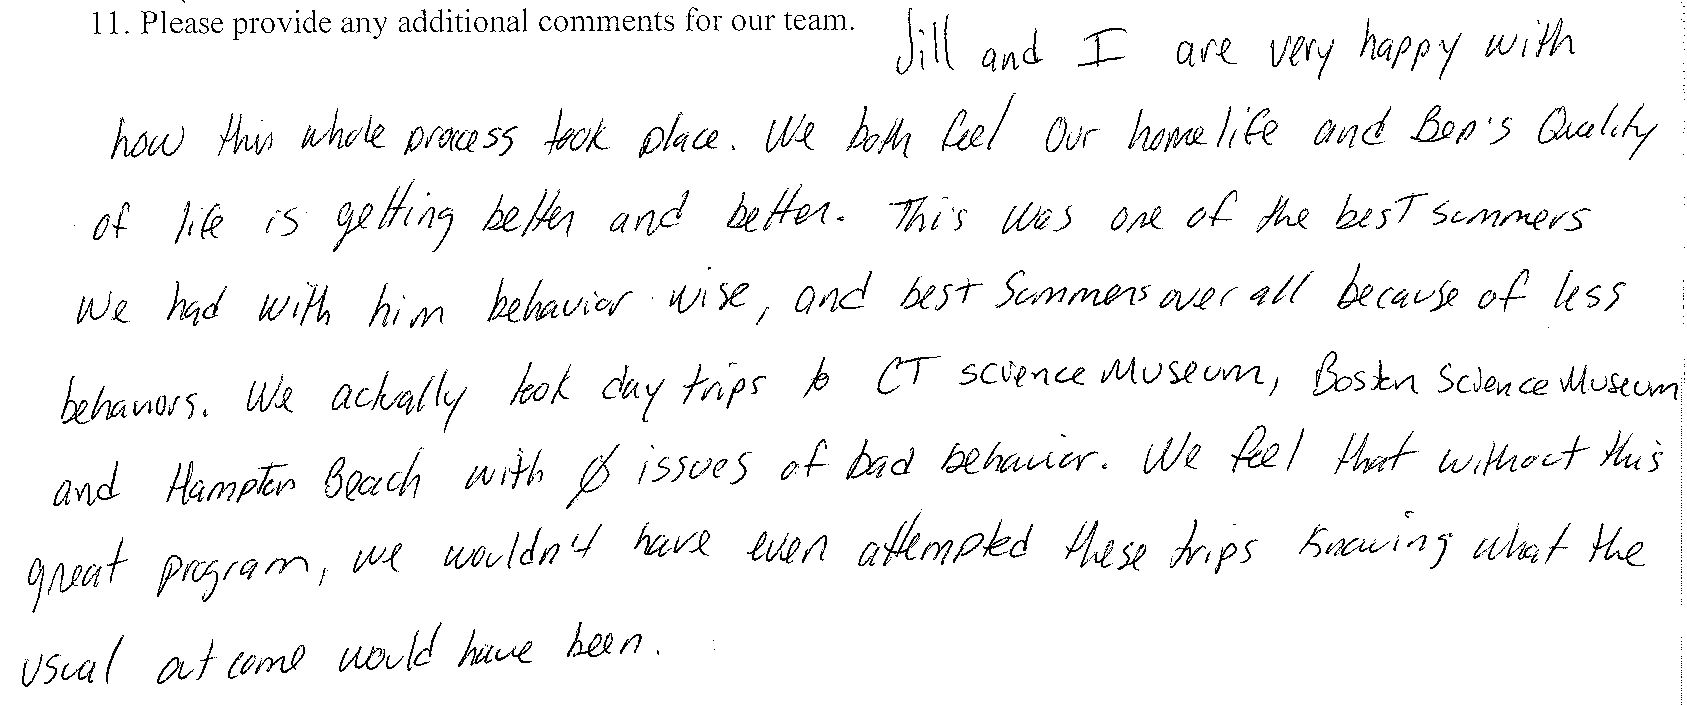 11. Please provide any additional comments for our team. Jill and I are very happy with
how this whole process took place. We both feel Our home life and Ben's Quality
of life is getting better and better. This was one of the best summers
we had with him behavior wise, and best Summers over all because of less
behaviors. We actually took day trips to CT science Museum, Boston Science Museum
and Hampton Beach with Ø issues of bad behavior. We feel that without this
great program, we wouldn't have even attempted these trips Knowing what the
usual out come would have been.